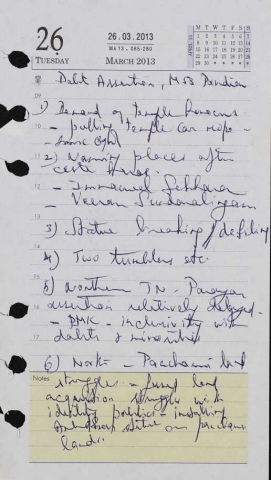 26
TUESDAY
26.03.2013
Wk13 . 085-280
MARCH 2013
APRIL 13
M T W T F S S
1 2 3 4 5 6 7
8 9 10 11 12 13 14
15 16 17 18 19 20 21
22 23 24 25 26 27 28
29 30
Dalit Assertion, MSS Pandian
09
1) Demand of temple honours
- pulling temple car rope -
2) Naming places after
caste
- Immanuel Sekharan
- Veeran Sundaralingam
3) Statue breaking/defiling
4) Two tumblers etc.
5) Northern TN - Parayar
assertion relatively delayed
- DMK - inclusivity with
dalits & minorities
17
6) North - Panchami land
Notes
struggle - fused land
acquisition struggle with
identity politics - installing
Ambedkar statue on panchami
lands.